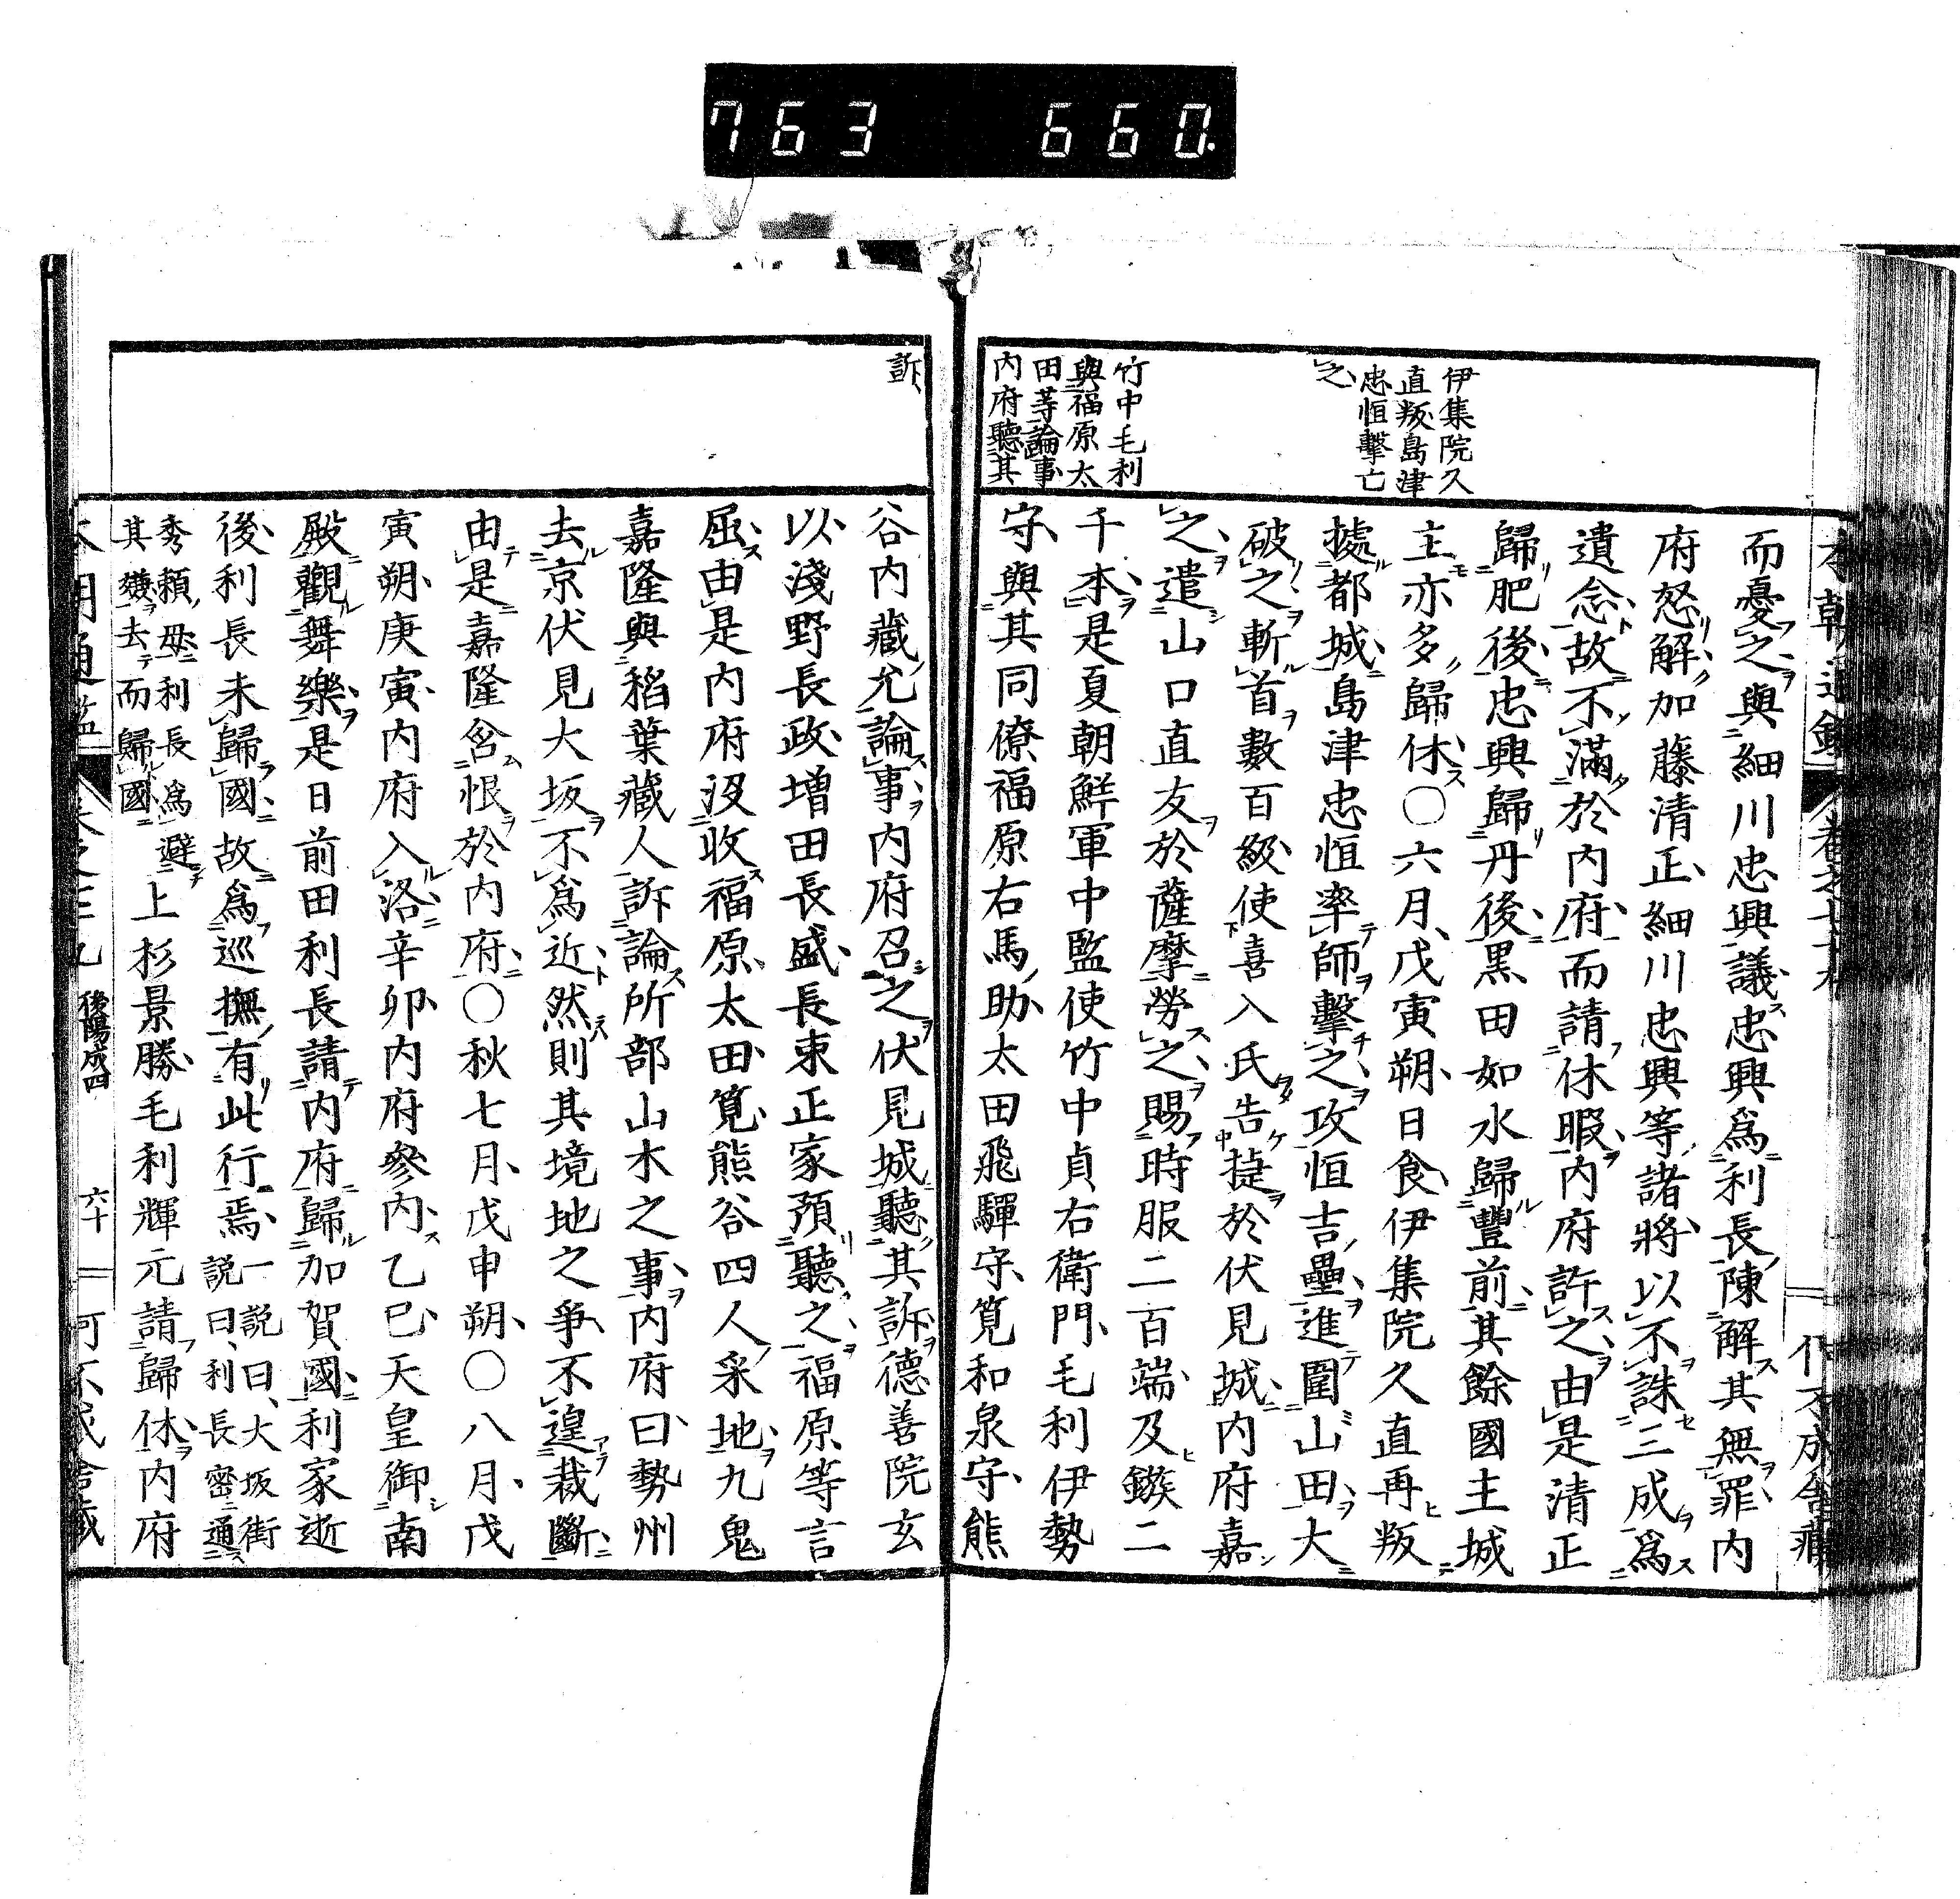 763 660.
伊集院久
直叛島津
忠恒擊亡
之
竹中毛利
與福原太
田等論事
內府聽其
而憂之與細川忠興議忠興爲利長陳解其無罪內
府怒解加藤清正細川忠興等諸將以不誅三成爲
遺念故不滿於內府而請休暇內府許之由是清正
歸肥後忠興歸丹後黑田如水歸豐前其餘國主城
主亦多歸休〇六月戊寅朔日食伊集院久直再叛
據都城島津忠恒率師擊之攻恒吉壘進圍山田大
破之斬首數百級使喜入氏告捷於伏見城內府嘉
之遣山口直友於薩摩勞之賜時服二百端及鏃二
千本是夏朝鮮軍中監使竹中貞右衛門毛利伊勢
守與其同僚福原右馬助太田飛驒守筧和泉守熊
訴
谷內藏允論事內府召之伏見城聽其訴德善院玄
以淺野長政增田長盛長束正家預聽之福原等言
屈由是內府沒收福原太田筧熊谷四人采地九鬼
嘉隆與稻葉藏人訴論所部山木之事內府曰勢州
去京伏見大坂不爲近然則其境地之爭不遑裁斷
由是嘉隆含恨於內府〇秋七月戊申朔〇八月戊
寅朔庚寅內府入洛辛卯內府參內乙巳天皇御南
殿觀舞樂是日前田利長請內府歸加賀國利家逝
後利長未歸國故爲巡撫有此行焉一說曰大坂街
說曰利長密通
秀頼母利長爲避
其嫌去而歸國
上杉景勝毛利輝元請歸休內府
後陽成四
六十